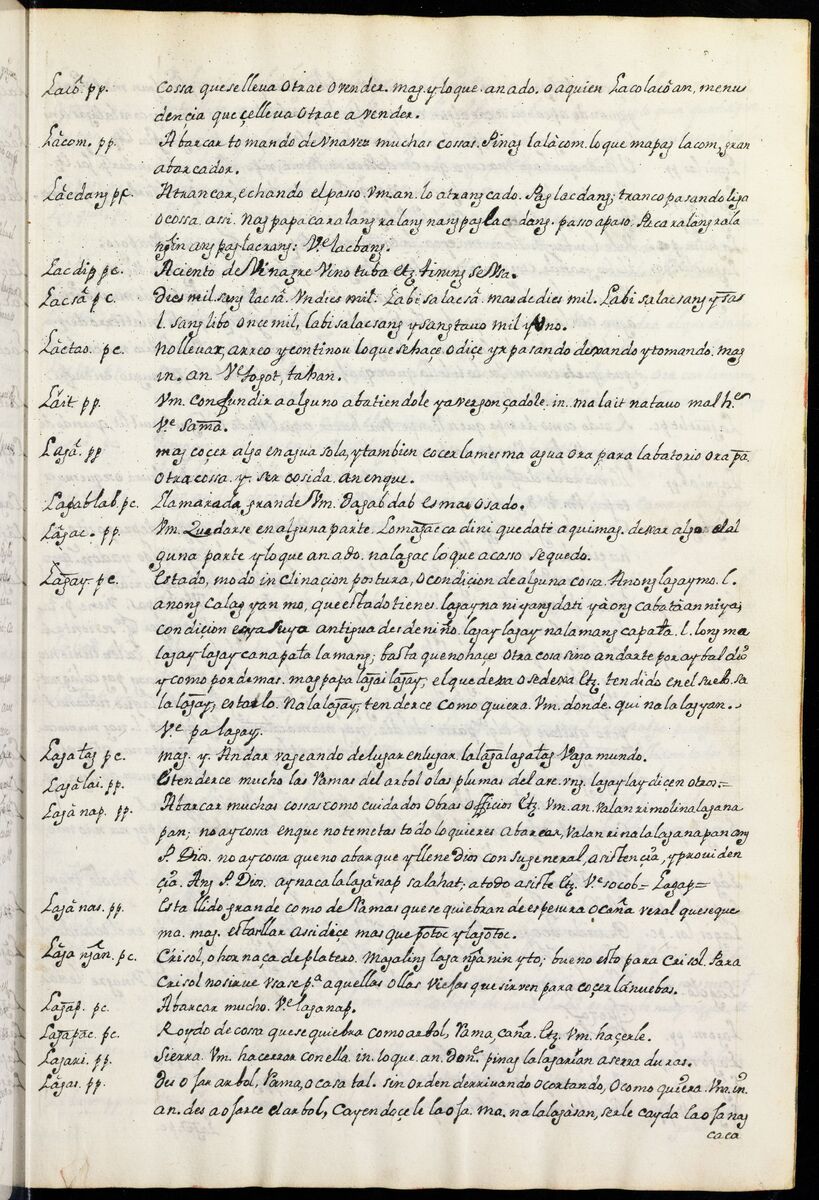 Lacō. pp. cossa que se lleva o trae o vender. mag. y lo que. an. ado. o a quien Lacolacōan, menu
dençia que çelleva o trae a vender.
Làcom. pp. Abarcar tomando de vna vez muchas cossas. Pinag lalàcom. lo que mapag lacom, gran
abarcador.
Làcdang pc. Atrancar, echando el passo. Vm. an. lo atrangcado. Pag lacdang; tranco pasando liga
o cossa. assi. nag papacaralang ralang nang pag lac dang. passo a paso. Pacaralang rala
ngin ang pag lacrang: Ve. lacbang.
Lac dip pc. Aciento de Vinagre Vino tuba etz. timing se Usa.
Lac sā pc. Dies mil. sang lacsā. Vn dies mil. Labi sa lacsā. mas de dies mil. Labi sa lacsang y sas
l. sang libo once mil, labi sa lacsang y sang tauo mil y Uno.
Làctao. pc. No llevar, arreo y continou lo que se hace o dice y r pasando dexando y tomando. mag
in. an. Ve. logot, tahan.
Làit pp. Vm. confundir a alguno abatiendole y avergonçadole. in. malait na tauo mal he
Ve. Sama.
Lagā. pp mag coçer algo en agua sola, y tambien cocer la mesma agua ora para labatorio ora pa
otra cossa. y. ser cosida. an enque.
Lagablab. pc. Llamarada grande Vm. Dagabdab es mas osado.
Làgac. pp. Vm. Quedarse en alguna parte. Lomagac ca dini quedate aqui mag. dexar algo el al
guna parte y lo que an. ado. nalagac lo que acasso se quedo.
Lagay. pc. Estado, modo inclinaçion postura, o condiçion de alguna cossa. Anong lagay mo. l.
anong calagyan mo, que estado tienes. lagay na niyang dati yàong cabatàan niya;
condiçion es ya suya antigua desde niño. lagay lagay na lamang capata. l. long ma
lagay lagay ca napata lamang; basta que no haçes otra cosa sino andarte por ay baldio
y como por demas. mag papa lagai lagay, el que dexa o se dexa Etz. tendido en el suelo. sa
lalagay, estarlo. Nalalagay, tenderce como quiera. Vm. donde. quinalalagyan.
Ve. palagay.
Lagatag pc. mag. y. Andar vageando de lugar en lugar. lalagalagatag Vaga mundo.
Lagàlai. pp. Estenderce mucho las Ramas del arbol o las plumas del ave. vng. lagaylay dicen otros:=
Lagànap. pp. Abarcar muchas cossas como cuidados Obras officios Etz. Vm. an. Valan ri molinalagana
pan; no ay cossa en que no te metas todo lo quieres abarcar, Valan ri nalalaganapan ang
P. Dios. no ay cossa que no abarque y llene Dios con su general, asistençia, y providen
çia. Ang P. Dios. ay nacalalagànap salahat; a todo asiste Etz. Ve. socob= Lagap=
Lagànas. pp. Estallido grande como de Ramas que se quiebran de espesura o caña veral que se que
ma. mag. estallar asi diçe mas que potoc y lagotoc.
Làga ngān. pc. Crisol, o hornaça de platero. Magaling laga ngānin yto; bueno esto para Crisol. Para
Crisol no sirve vsa se pa. aquellas ollas Viejas que sirven para coçer las nuebas.
Lagap. pc. Abarcar mucho. Ve. laganap.
Lagapac. pc. Roydo de cosa que se quiebra como arbol, Rama, caña. Etz. Vm. haçerle.
Lagari. pp. Sierra. Vm. hacerrar con ella. in. lo que. an. Don. pinag lalagarian aserraduras.
Làgas. pp. des ojar arbol, Rama, o casa tal. sin orden derrivando o cortando, o como quiera. Vm. in.
an. desaojarce el arbol, cayendoçele la oja. ma. nalalagàsan, serle cayda la oja nag
caca